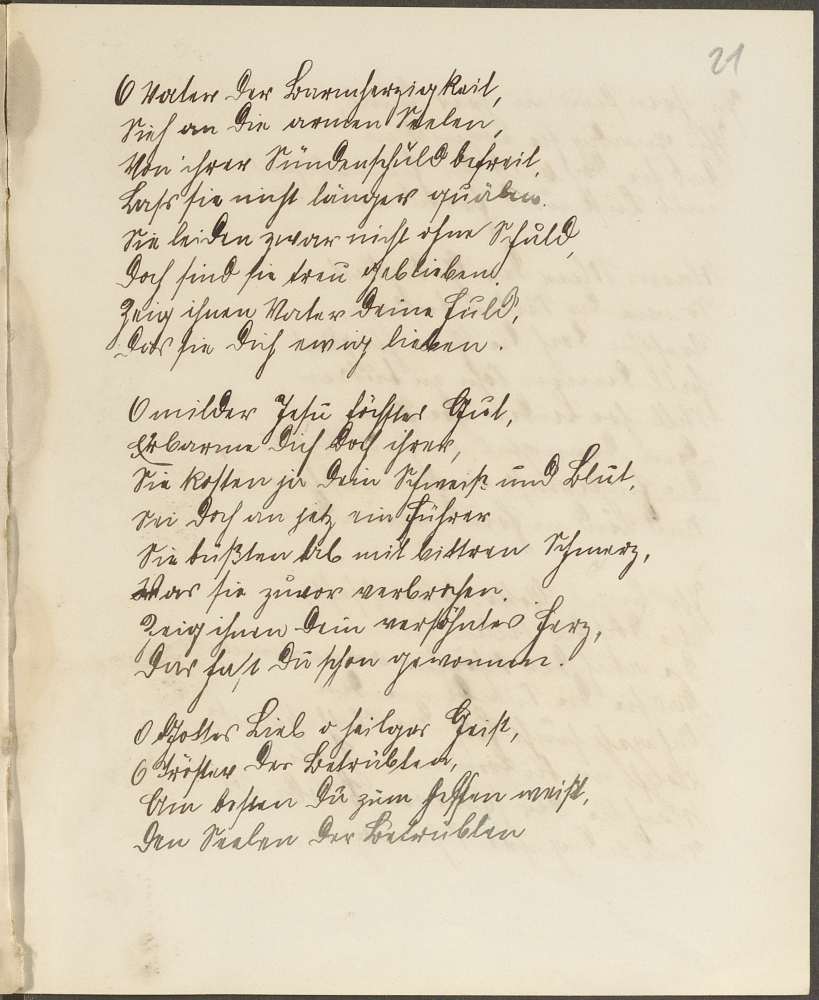 21
O Vater der Barmherzigkeit,
Sieh an die armen Seelen,
Von ihrer Sündenschuld befreit,
Lass sie nicht länger quälen.
Sie leiden zwar nicht ohne Schuld,
Doch sind sie treu geblieben,
Zeig ihnen Vater deine Huld,
Das sie dich ewig lieben.
O milder Jesu höchstes Gut,
Erbarme dich doch ihrer,
Sie kosten ja dein Schweiß und Blut,
Sei doch an jetz ein Führer
Sie büßten ab mit bittren Schmerz,
Was sie zuvor verbrochen.
Zeig ihnen dein versöhntes Herz,
Das hast du schon gewonnen.
O Gottes Lieb o heilger Geist,
O Tröster der Betrübten,
Am besten du zum helfen weißt,
Den Seelen der Betrübten